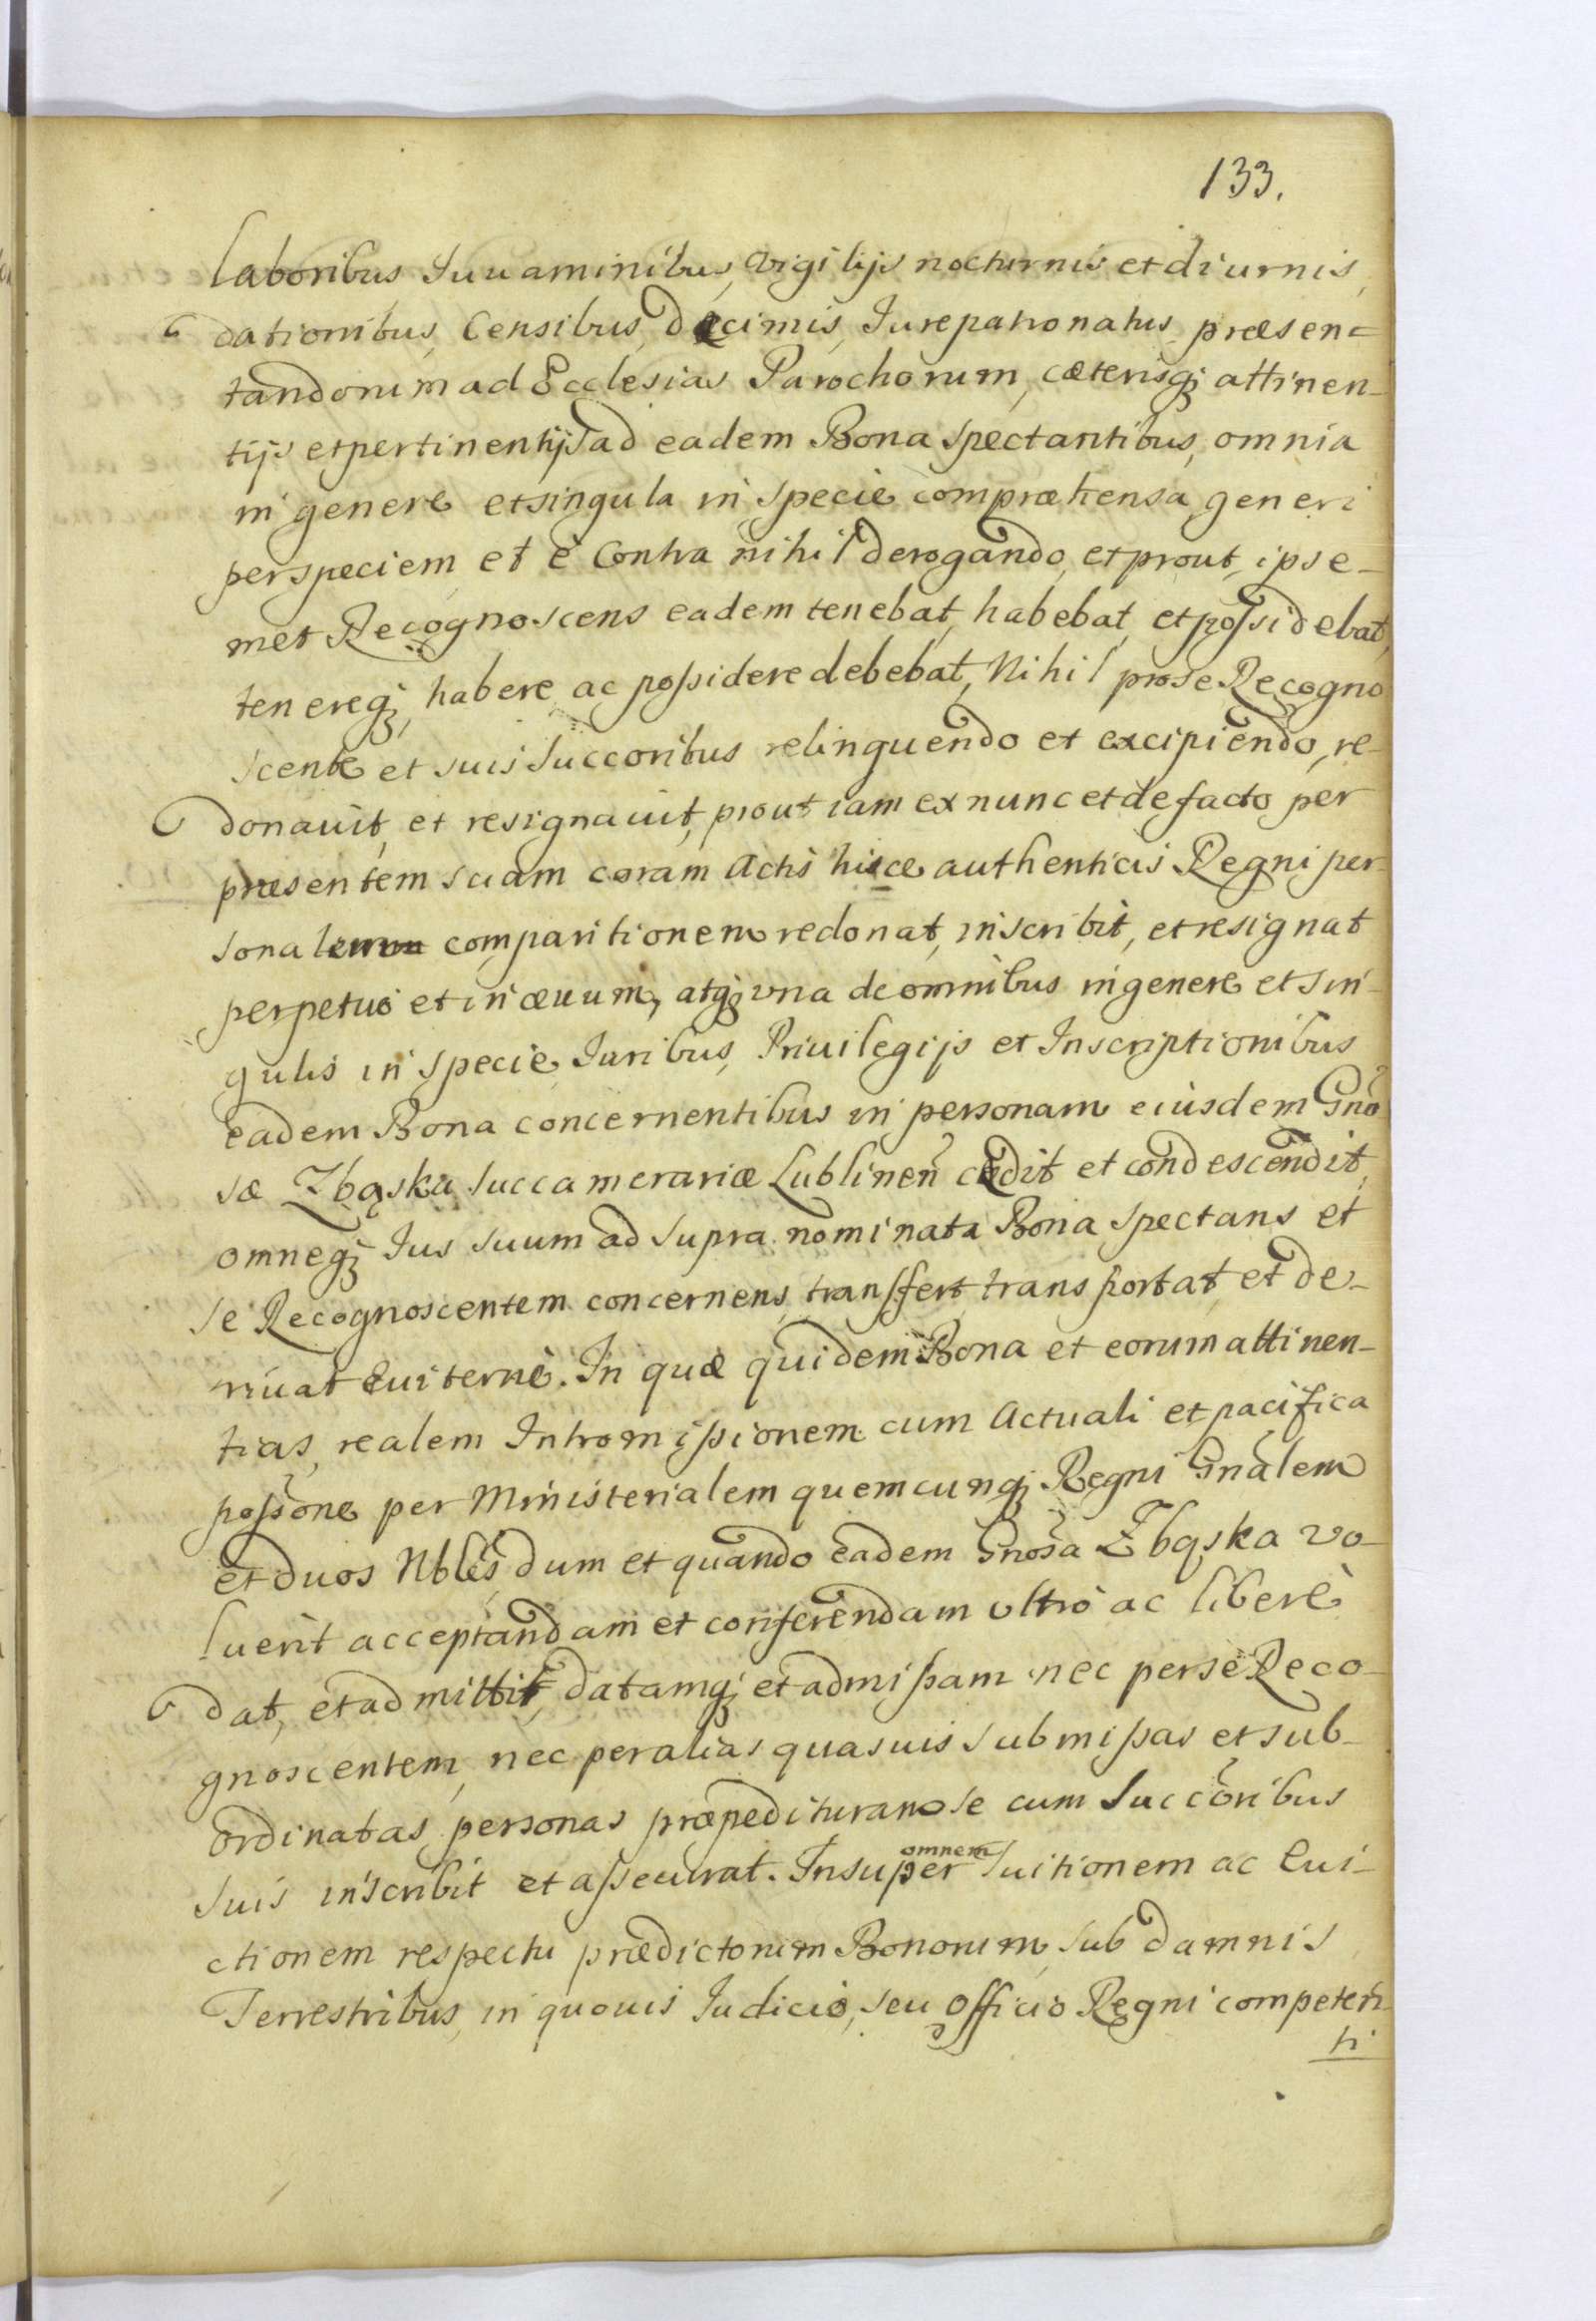 133.
laboribus Iuuaminibus, vigilijs nocturnis et diurnis,
dationibus, Censibus, decimis, Iurepatronatus præsen=
tandorum ad Ecclesias Parochorum, cæterisqȝ attinen-
tijs et pertinentijs ad eadem Bona spectantibus, omnia
in genere et singula in specie compræhensa, generi
per speciem et è Contra nihil derogando, et prout ipse-
met Recognoscens eadem tenebat, habebat, et possidebat,
tenereqȝ, habere ac possidere debebat, Nihil pro se Recogno
scente et suis Succoribus relinquendo et excipiendo, re-
donauit, et resignauit, prout iam ex nunc et de facto per
præsentem suam coram Actis hisce authenticis Regni per-
sonalem comparitionem redonat, inscribit, et resignat
perpetuò et in æuum, atqȝ vna de omnibus in genere et sin-
gulis in specie, Iuribus, Priuilegijs et Inscriptionibus
eadem Bona concernentibus in personam eiusdem Gnõ
sæ Zbąska succamerariæ Lublineñ cedit et condescendit,
omneqȝ Ius suum ad supra nominata Bona spectans et
se Recognoscentem concernens, transfert, transportat, et de-
riuat Euiternè. In quæ quidem Bona et eorum attinen-
tias, realem Intromissionem cum Actuali et pacifica
possõne per Ministerialem quemcunqȝ Regni Gnãlem
et duos Nbles, dum et quando eadem Gnõsa Zbąska vo-
luerit acceptandam et conferendam vltrò ac liberè
dat, et admittit, datamqȝ et admissam nec per se Reco-
gnoscentem, nec per alias quasuis submissas et sub-
ordinatas personas præpedituram se cum Succõribus
suis inscribit et assecurat. Insuper omnem Tuitionem ac Eui-
ctionem respectu prædictorum Bonorum, sub damnis
Terrestribus, in quouis Iudicio, seu Officio Regni competen-
ti